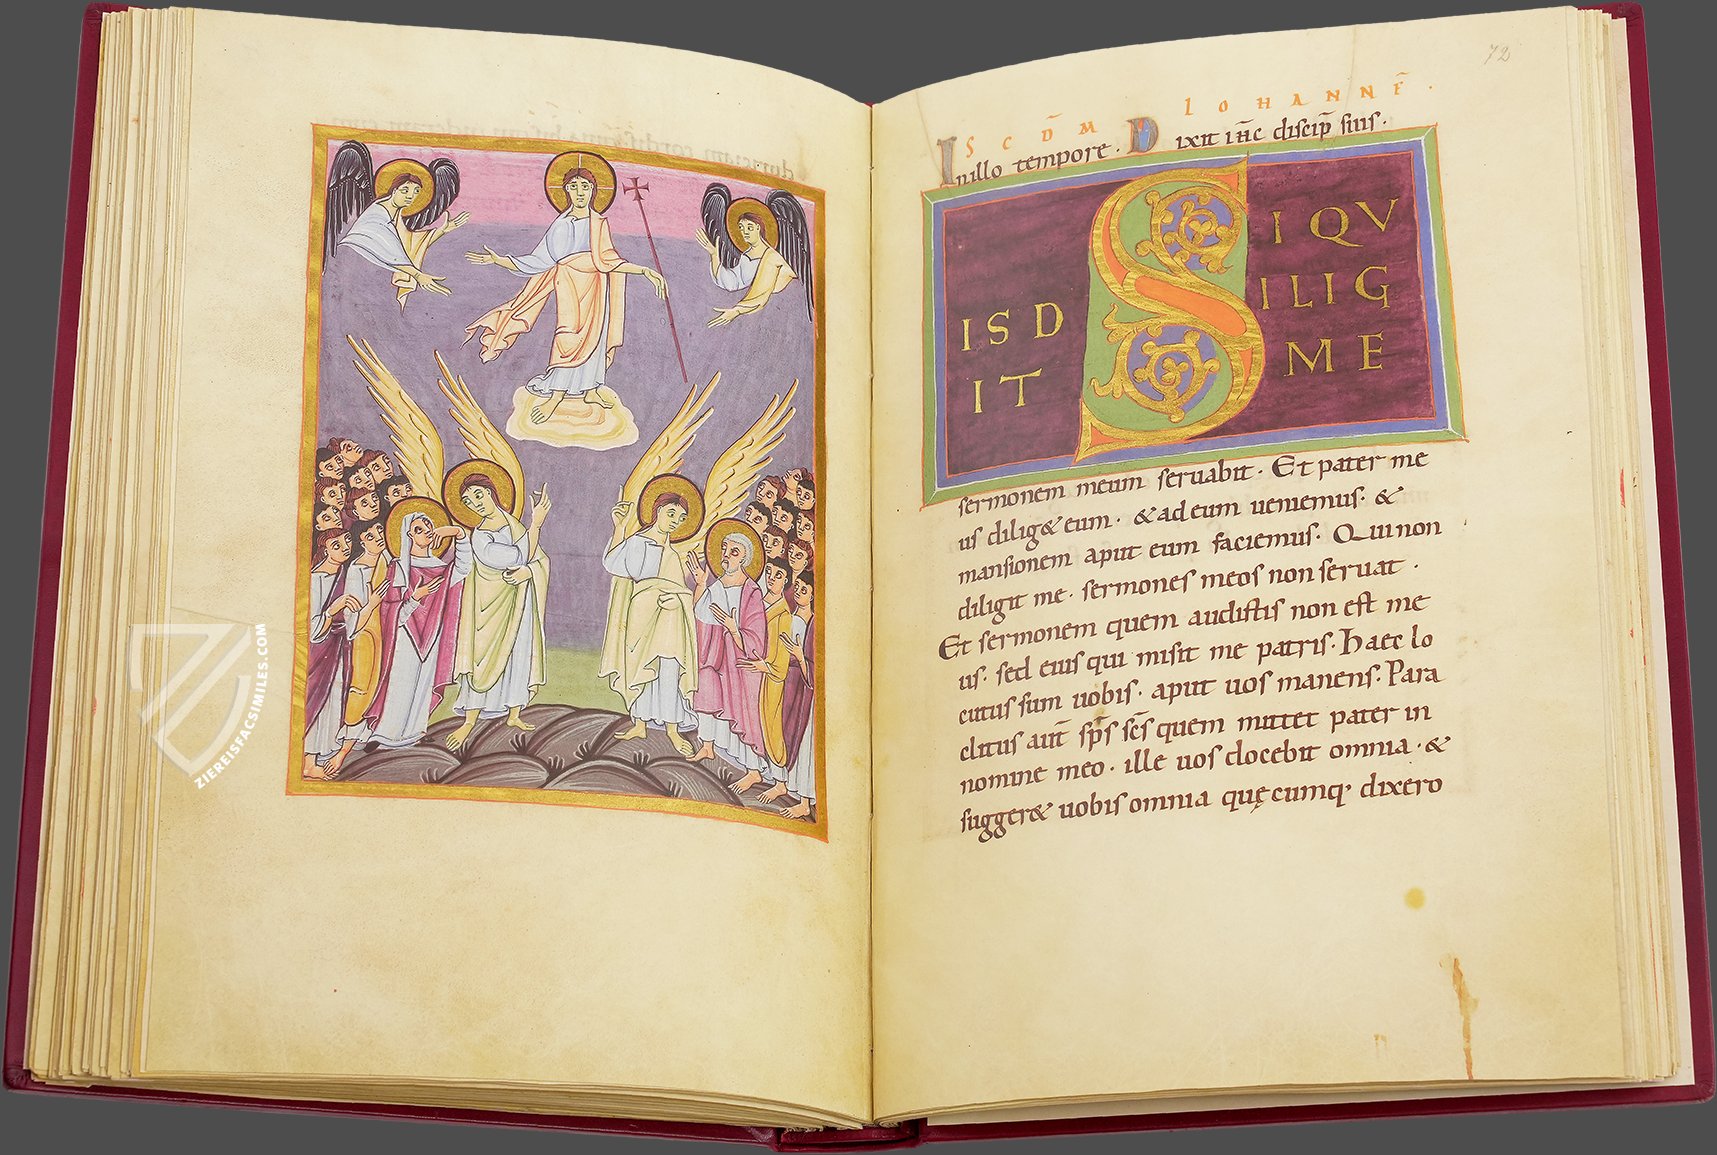 72
S C D̄ M IOHANNE̅.
Inillo tempore. Dixit ih̅c discip̅ suis.
SIQV
ISD ILIG
IT ME
sermonem meum seruabit. Et pater me
us dilig& eum. & ad eum ueniemus. &
mansionem aput eum faciemus. Qui non
diligit me. sermones meos non seruat.
Et sermonem quem audistis non est me
us. sed eius qui misit me patris. Haec lo
cutus sum uobis. aput uos manens. Para
clitus aut̅ sp̅s sc̅s quem mittet pater in
nomine meo. ille uos docebit omnia. &
sugger& uobis omnia quęcumq. dixero
ZIEREISFACSIMILES.COM